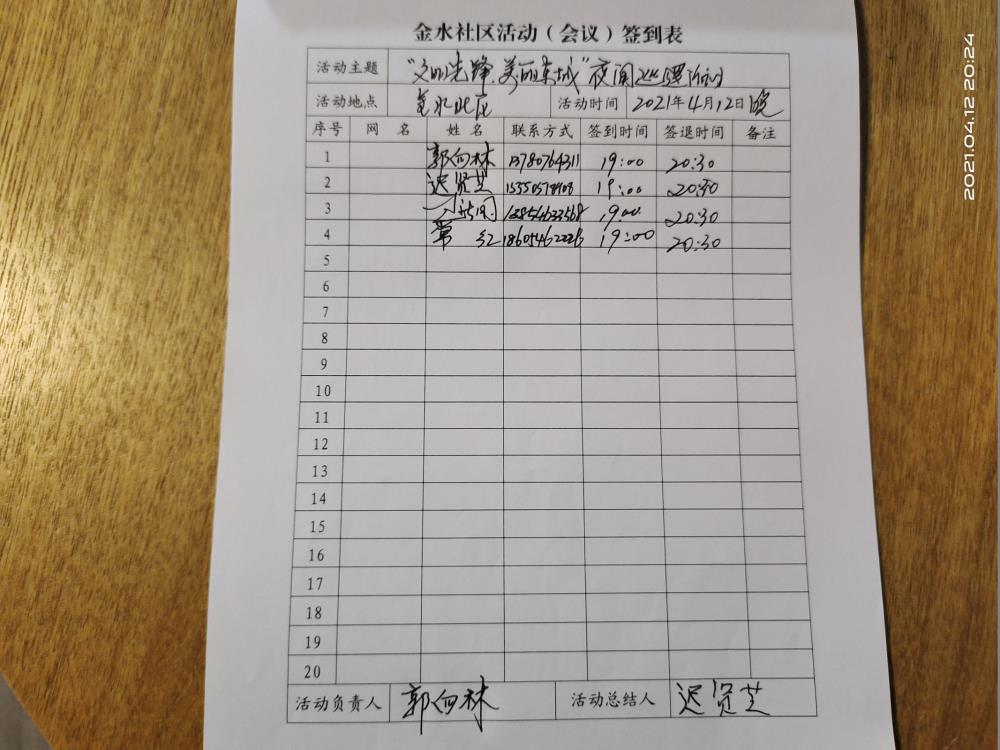 金水社区活动（会议）签到表
活动主题 "文明先锋 美丽东城"夜间巡逻活动
活动地点 金水社区 活动时间 2021年4月12日晚
序号 网 名 姓 名 联系方式 签到时间 签退时间 备注
1 郭向林 13780764311 19:00 20:30
2 迟贤芝 19:00 20:30
3 19:00 20:30
4 常红 18605462226 19:00 20:30
5
6
7
8
9
10
11
12
13
14
15
16
17
18
19
20
活动负责人 郭向林 活动总结人 迟贤芝
2021.04.12 20:24